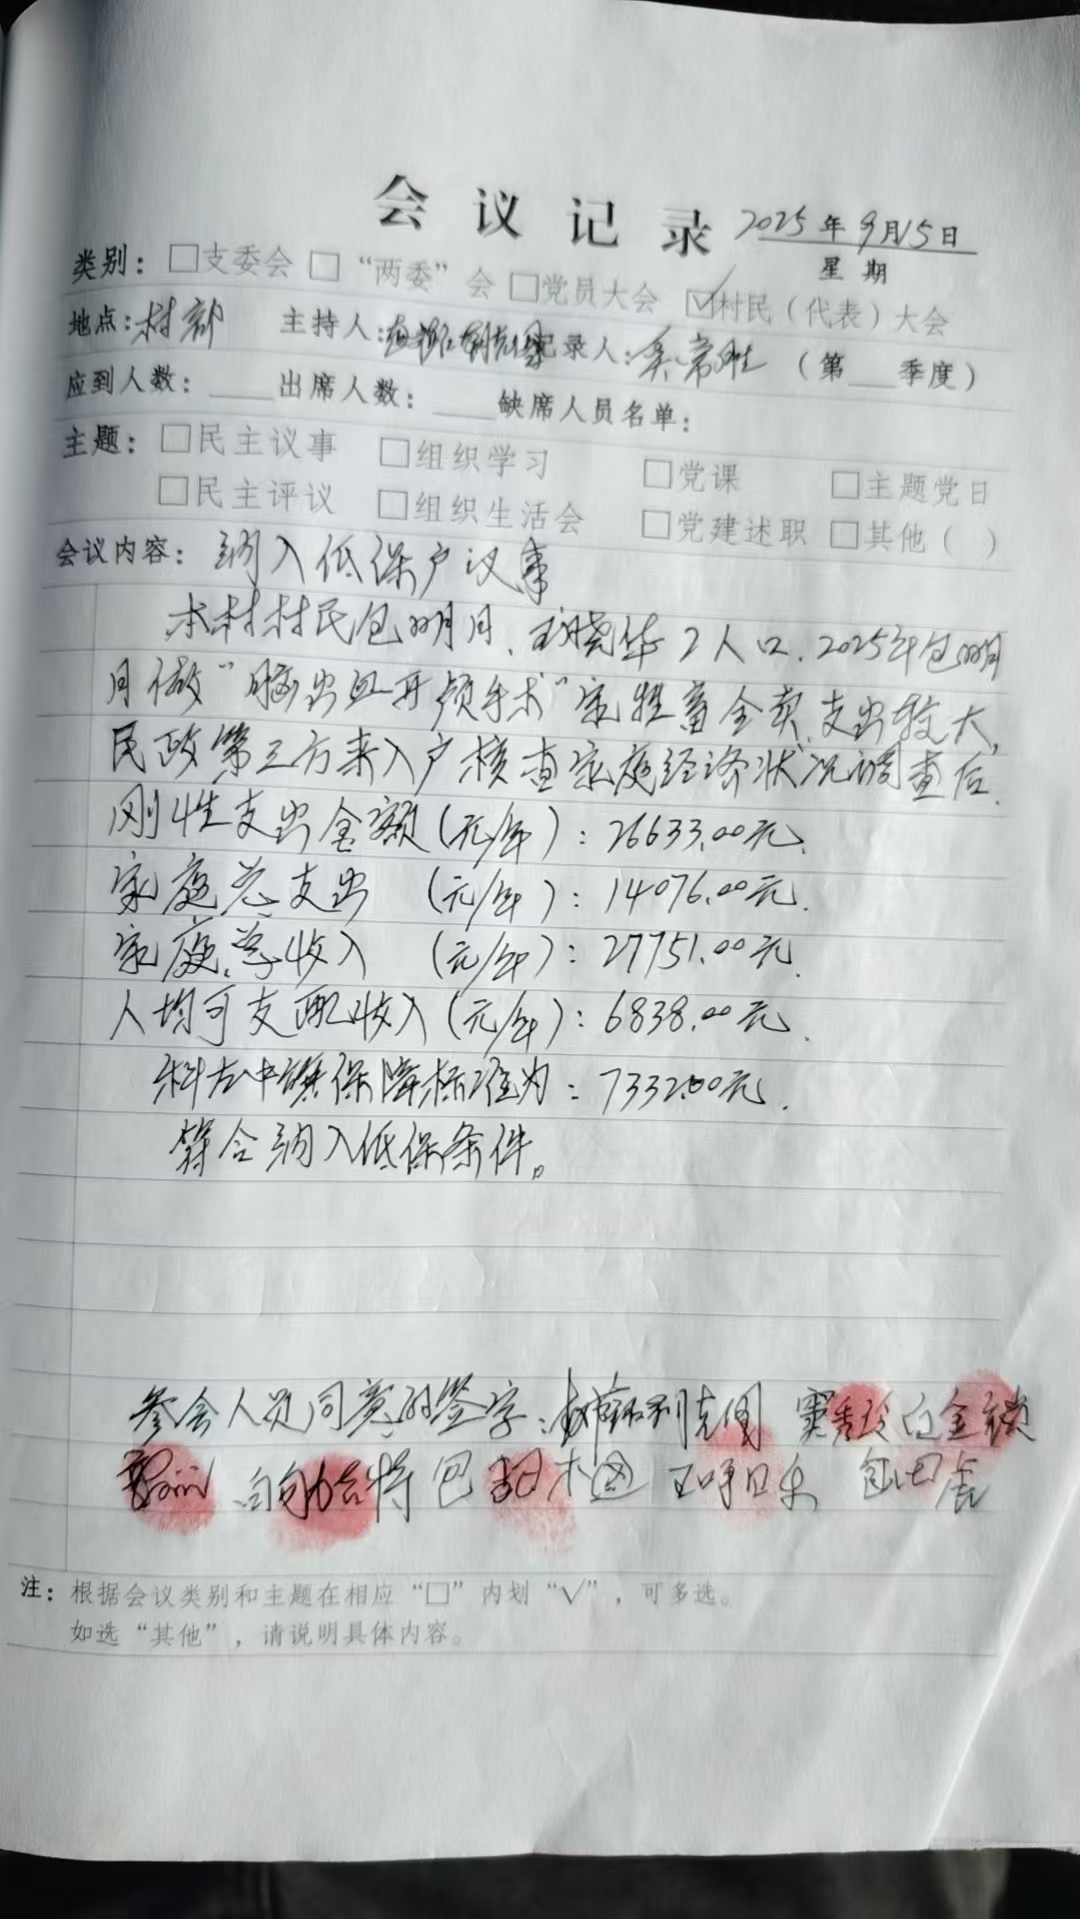 会议记录 2025年9月15日
星期
类别：□支委会 □“两委”会 □党员大会 ☑村民（代表）大会
地点：村部 主持人： 记录人：吴常胜 （第＿季度）
应到人数：＿＿出席人数：＿＿缺席人员名单：
主题：□民主议事 □组织学习 □党课 □主题党日
□民主评议 □组织生活会 □党建述职 □其他（ ）
会议内容：纳入低保户议事
本村村民包明月、王晓华2人口、2025年包明月
月做“脑出血开颅手术”家牲畜全卖,支出较大,
民政第三方来入户核查家庭经济状况调查后.
刚性支出金额(元/年)：26633.00元.
家庭总支出 (元/年)：14076.00元.
家庭总收入 (元/年)：27751.00元.
人均可支配收入(元/年)：6838.00元.
科左中旗保障标准为：7332.00元.
符合纳入低保条件。
参会人员同意的签字： 窦秀玲 白金锁
白 哈特 巴 木图 王呼日乐 包
注：根据会议类别和主题在相应“□”内划“√”，可多选。
如选“其他”，请说明具体内容。